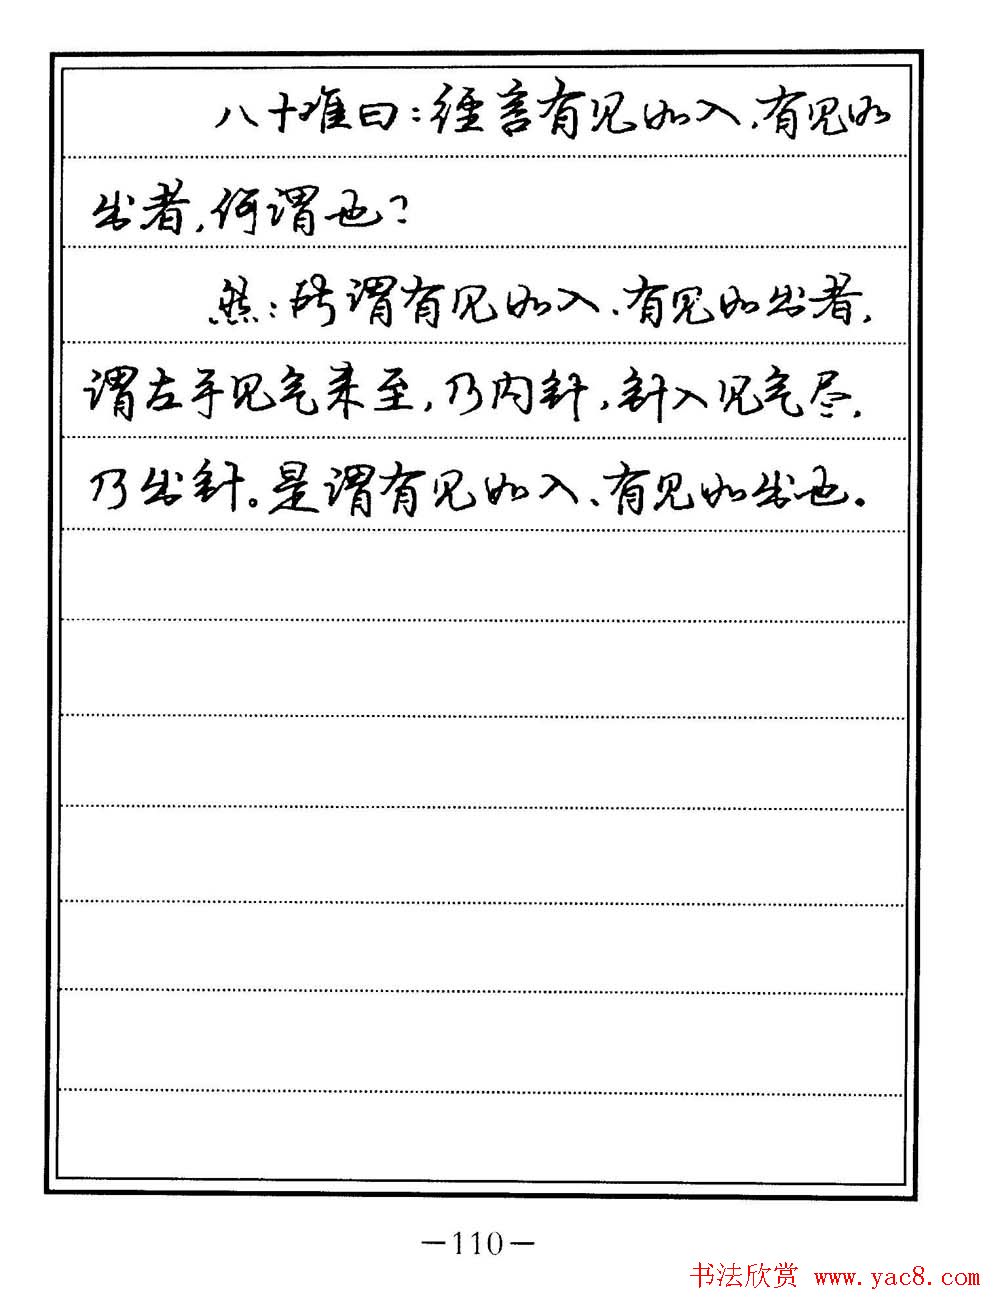 八十难曰：经言有见如入、有见如
出者，何谓也？
然：所谓有见如入、有见如出者，
谓左手见气来至，乃内针，针入见气尽，
乃出针。是谓有见如入、有见如出也。
—110—
书法欣赏 www.yac8.com